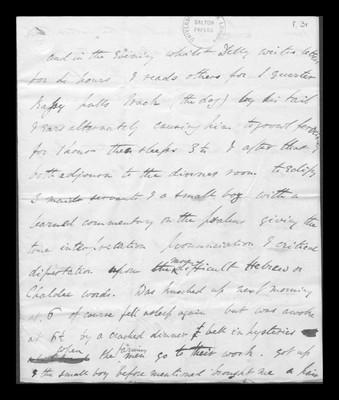 GALTON PAPERS
and in the Evening whilst Delly writes letters
for 2 hours I reads others for 1 quarter
pulls back (the dog) by his tail
& ears alternately causing him to growl
for 1 hour then sleeps 3/4 & after that
both adjourn to the dinner room to
2 maid servants & a small boy with a
learned commentary on the psalms giving the
true interpretation pronunciation & critical
disertation upon the most difficult Hebrew or
Chaldee words. Was knocked up next morning
at 6 of course fell asleep again but was awoke
at 6½ by a cracked dinner bell in hysterics
when the farming men go to their work. got up
& the small boy before mentioned brought me a pair